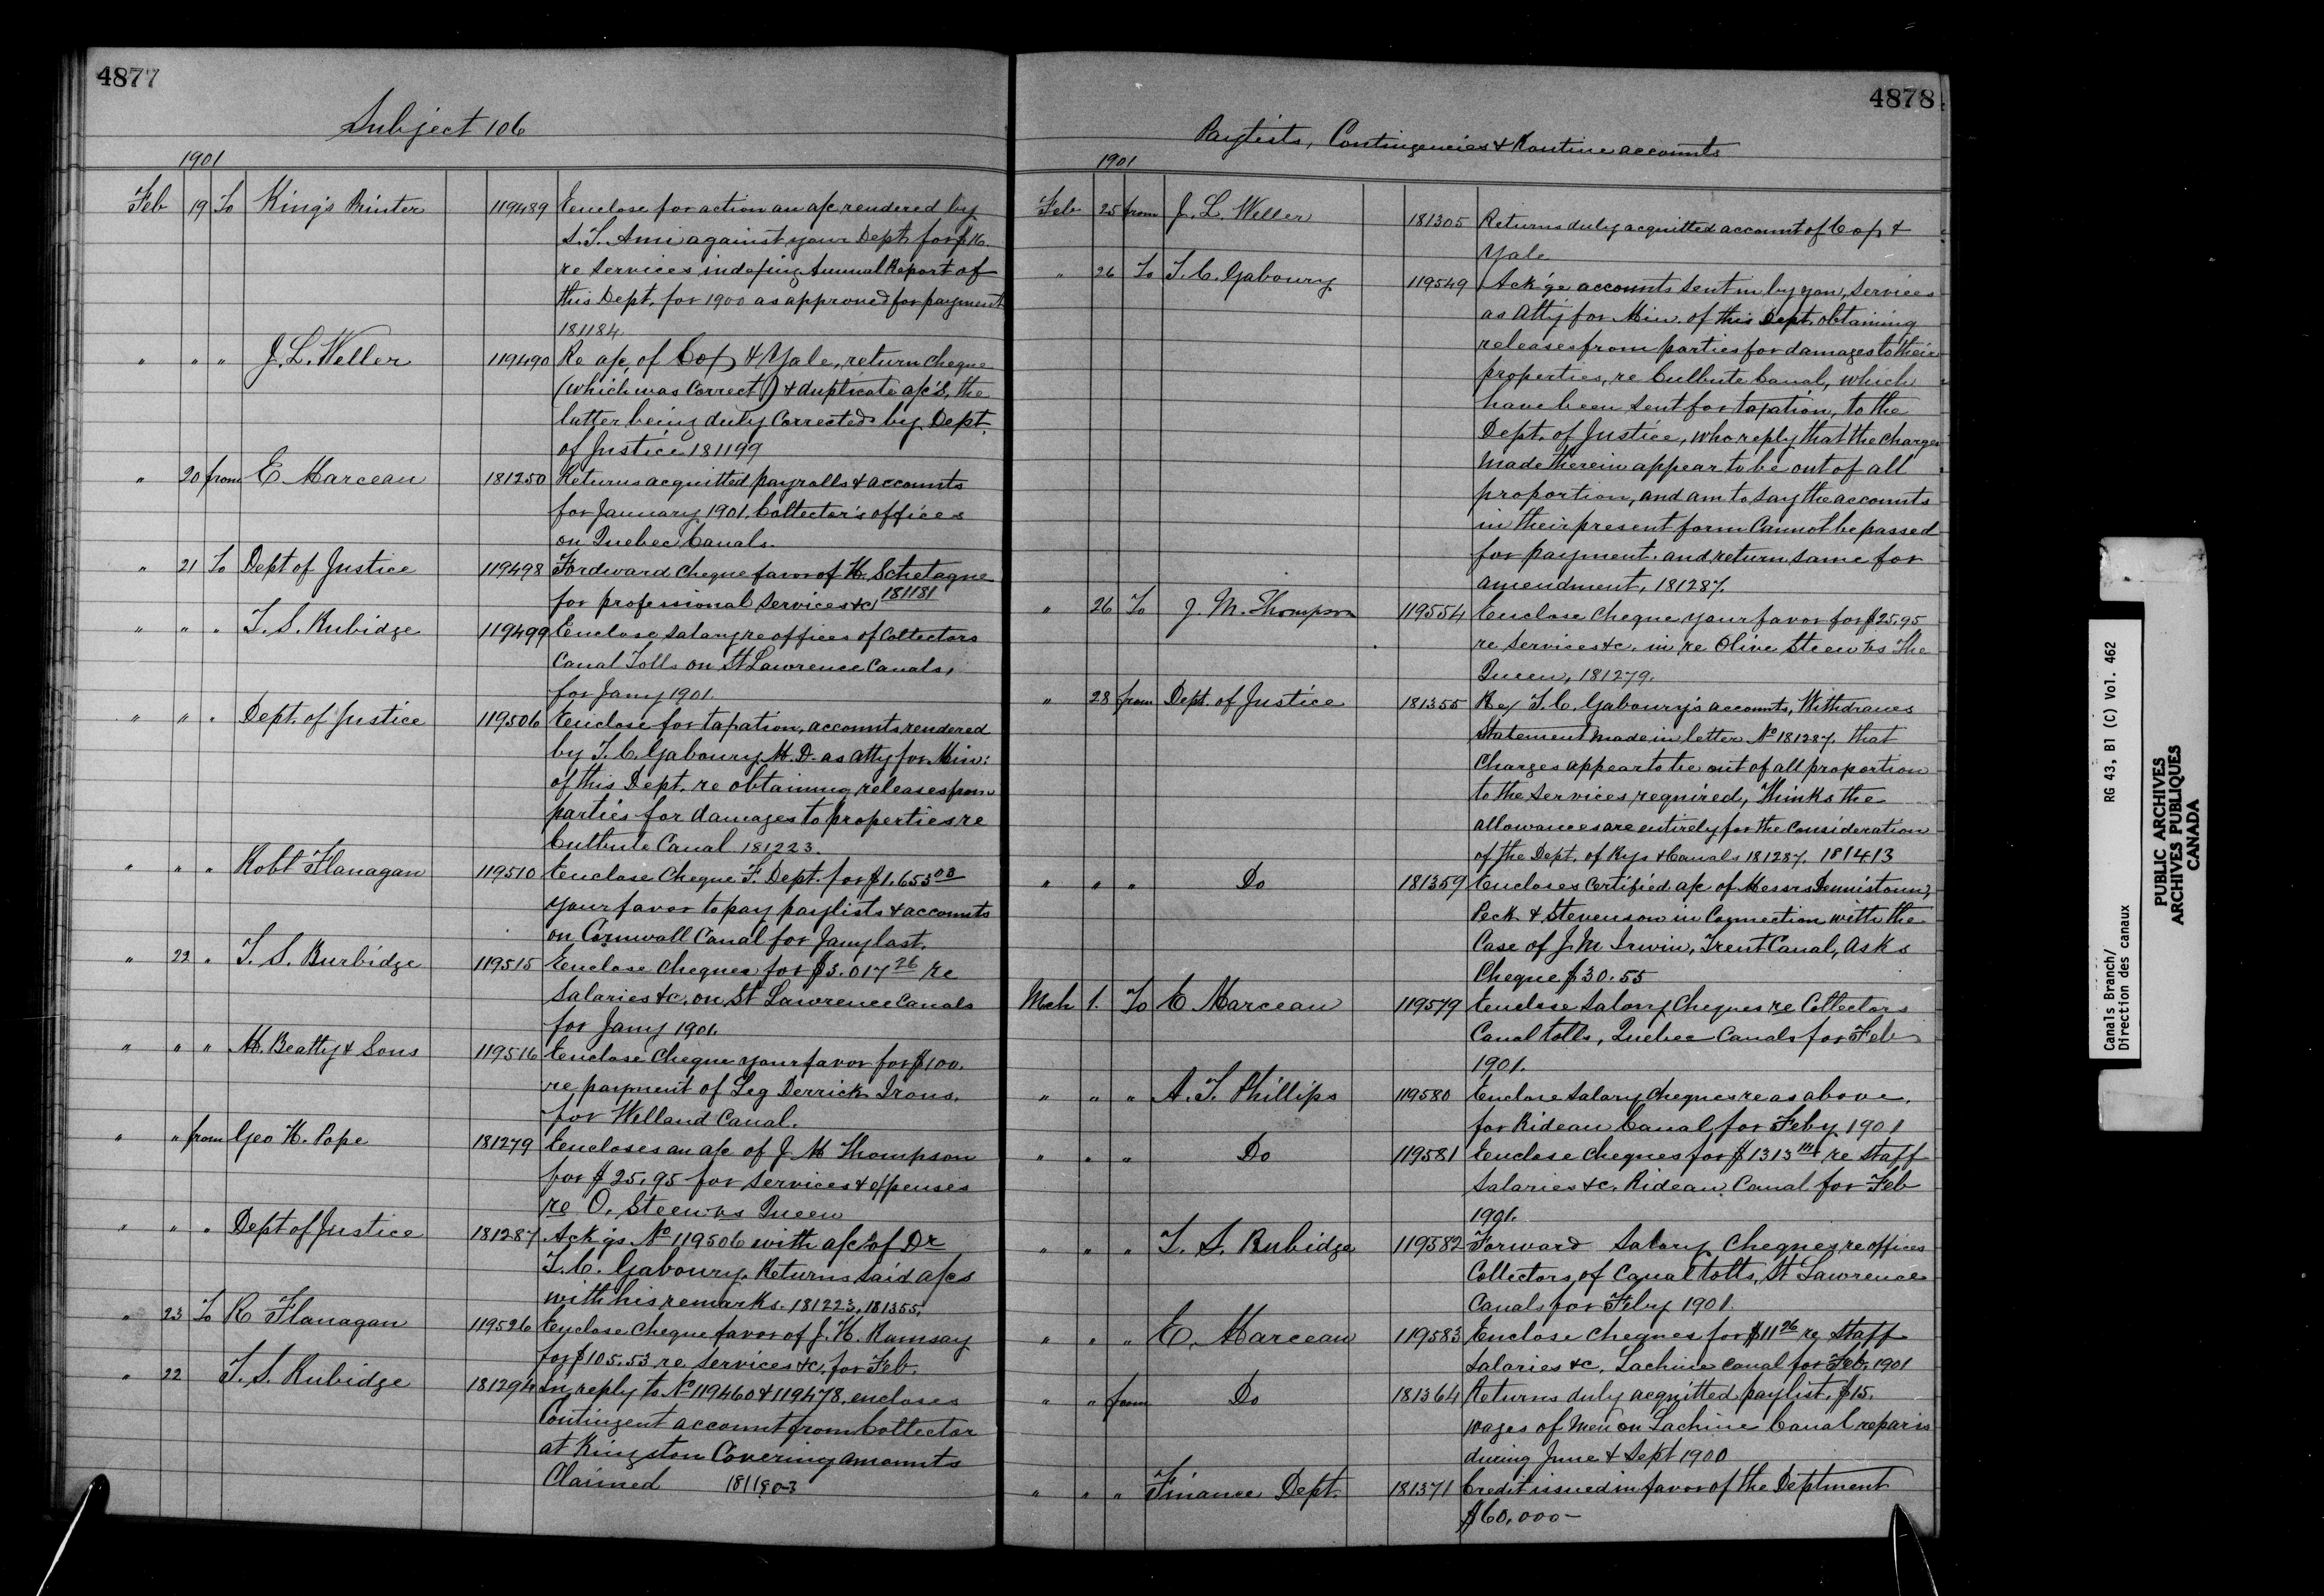 4877
Subject 106
1901
Feb 19 To King's Printer 119489 Enclose for action an a/c rendered by
S. T. Ami against your Dept. for $16.
re services indexing Annual Report of
this Dept. for 1900 as approved for payment
181184.
" " " J. L. Weller 119490 Re a/c, of Cox & Yale, return cheque
(which was correct) & duplicate a/cs, the
latter being duly corrected by Dept.
of Justice 181199
" 20 from E Marceau 181250 Returns acquitted payrolls & accounts
for January 1901. Collector's offices
on Quebec Canals.
" 21 To Dept of Justice 119498 Fordward cheque favor of H. Schetagne
for professional services &c 181181
" " " T. S. Rubidge 119499 Enclose salary re offices of Collectors
Canal Tolls on St Lawrence Canals,
for Jany 1901.
" " " Dept. of Justice 119506 Enclose for taxation, accounts rendered
by T. C. Gaboury M. D. as atty for Min:
of this Dept. re obtaining releases from
parties for damages to properties re
Culbute Canal 181223.
" " " Robt Flanagan 119510 Enclose Cheque F. Dept. for $1.653 03
your favor to pay paylists & accounts
on Cornwall Canal for Jany last.
" 22 " T. S. Burbidge 119515 Enclose cheques for $3.017 26 re
Salaries &c. on St Lawrence Canals
for Jany 1901.
" " " M. Beatty & Sons 119516 Enclose Cheque your favor for $100.
re payment of Leg Derrick Irons,
for Welland Canal.
" " from Geo H. Pope 181279 Encloses an a/c of J M Thompson
for $25.95 for services & expenses
re O. Steen vs Queen
" " " Dept of Justice 181287 Ackgs. No 119506 with a/cs of Dr
T. C. Gaboury. Returns said a/cs
with his remarks. 181223, 181355.
" 23 To R Flanagan 119526 Enclose Cheque favor of J. H. Ramsay
for $105.53 re services &c. for Feb.
" 22 T. S. Rubidge 181294 In reply to No 119460 & 119478. encloses
Contingent account from Collector
at Kingston Covering amounts
Claimed
4878
Paylists, Contingencies & Routine accounts
1901
Feb 25 from J. L. Weller 181305 Returns duly acquitted account of Cox &
Yale
" 26 To T. C. Gaboury 119549 Ack'ge accounts sent in by you, services
as Atty for Min. of this Dept. obtaining
releases from parties for damages to their
properties, re Culbute Canal, which
have been sent for taxation, to the
Dept. of Justice, who reply that the charges
made therein appear to be out of all
proportion, and am to say the accounts
in their present form cannot be passed
for payment. and return same for
amendment, 181287.
" 26 To J. M. Thompson 119554 Enclose Cheque your favor for $25.95
re services &c. in re Olive Steen vs The
Queen, 181279.
" 28 from Dept. of Justice 181355 Re/ T. C. Gaboury's accounts, Withdraws
Statement made in letter No 181287. that
Charges appear to be out of all proportion
to the services required, Thinks the
allowances are entirely for the Consideration
of the Dept. of Rys & Canals 181287. 181413
" " " Do 181359 Encloses Certified a/c of Messrs Dennistoun,
Peck & Stevenson in Connection with the
Case of J. M Irwin, Trent Canal, Asks
Cheque $30.55
Mch 1. To E Marceau 119579 Enclose Salary Cheques re Collectors
Canal tolls, Quebec Canals for Feb
1901.
" " " A. T. Phillips 119580 Enclose Salary cheques re as above.
for Rideau Canal for Feby 1901
" " " Do 119581 Enclose cheques for $1313 re Staff
Salaries &c. Rideau Canal for Feb
1901.
" " " T. S. Rubidge 119582 Forward Salary Cheques re offices
Collectors of Canal tolls, St Lawrence
Canals for Feby 1901.
" " " E. Marceau 119583 Enclose cheques for $11 26 re Staff
Salaries &c. Lachine Canal for Feb. 1901
" " from Do 181364 Returns duly acquitted paylist. $15.
wages of Men on Lachine Canal repairs
during June & Sept 1900
" " " Finance Dept. 181371 Credit issued in favor of the Deptment
$60.000—
Canals Branch/ RG 43, B1 (C) Vol. 462
Direction des canaux
PUBLIC ARCHIVES
ARCHIVES PUBLIQUES
CANADA